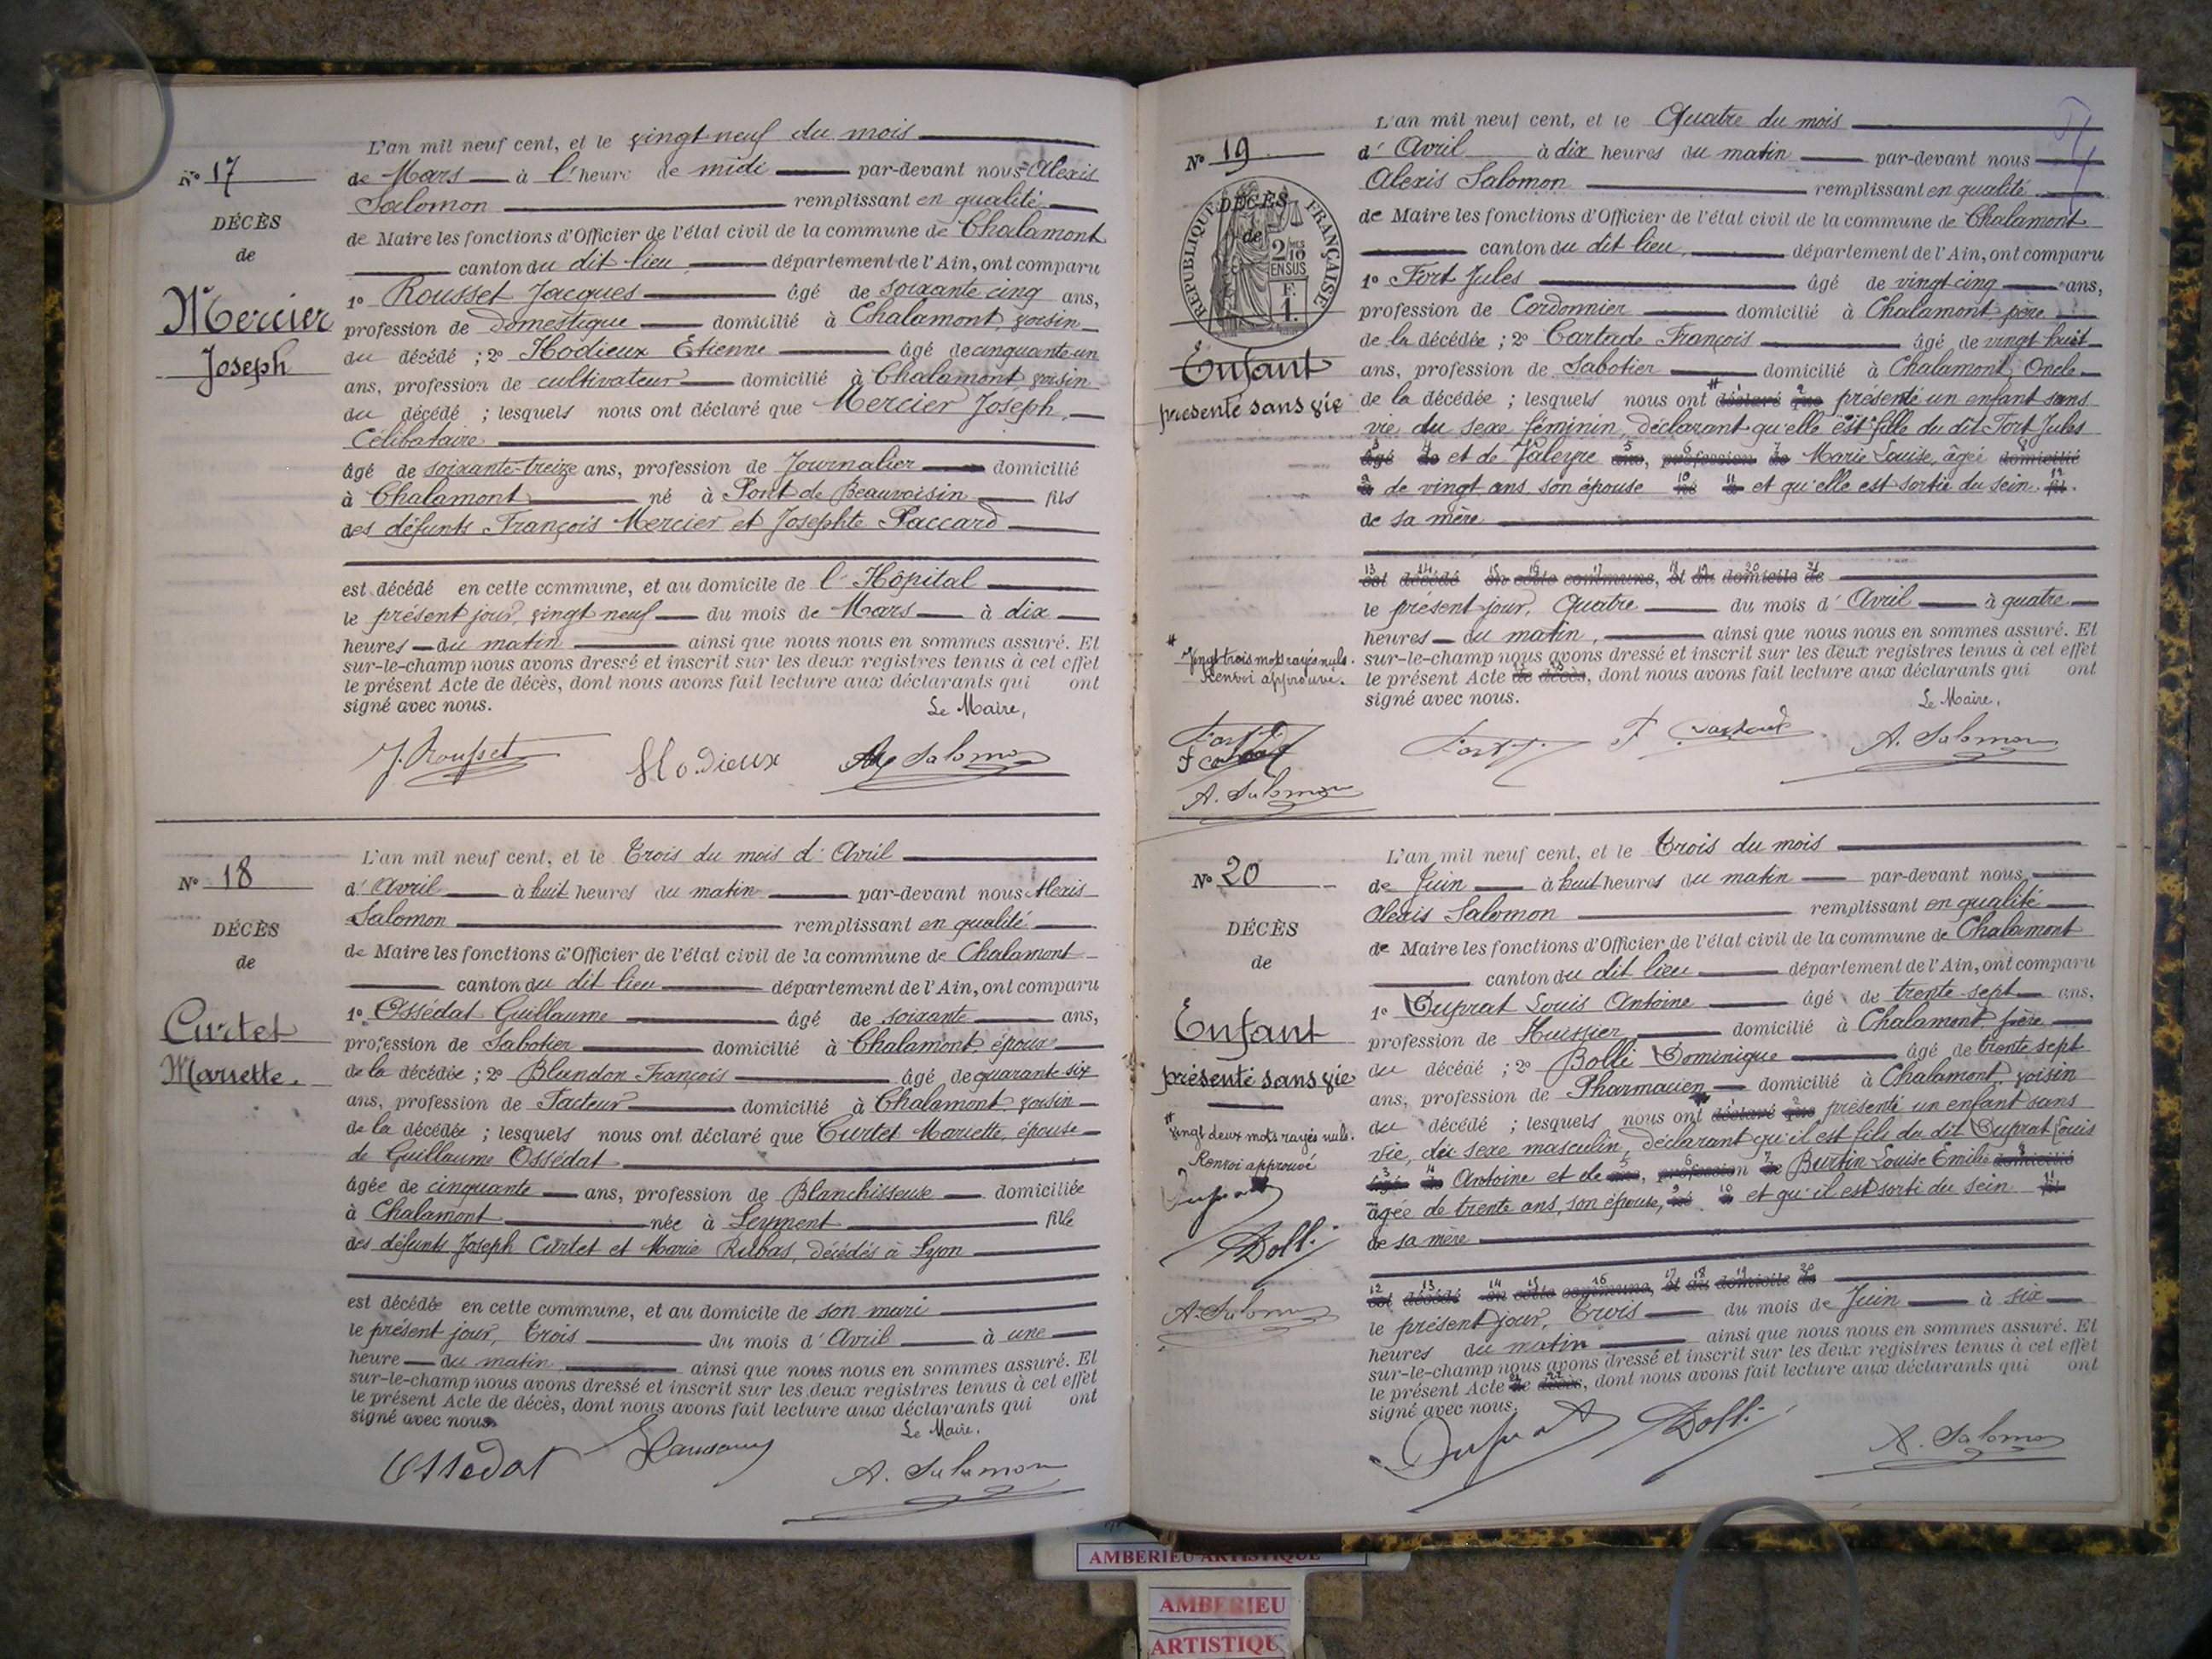 N° 17
DÉCÈS
de
Mercier
Joseph
L'an mil neuf cent, et le vingt neuf du mois
de Mars à l'heure de midi par-devant nous Alexis
Salomon remplissant en qualité
de Maire les fonctions d'Officier de l'état civil de la commune de Chalamont
canton du dit lieu département de l'Ain, ont comparu
1° Rousset Jacques âgé de soixante cinq ans,
profession de Domestique domicilié à Chalamont, voisin
du décédé ; 2° Hodieux Etienne âgé de cinquante-un
ans, profession de cultivateur domicilié à Chalamont, voisin
du décédé ; lesquels nous ont déclaré que Mercier Joseph,
Célibataire
âgé de soixante-treize ans, profession de Journalier domicilié
à Chalamont né à Pont de Beauvoisin fils
des défunts François Mercier et Josephte Paccard
est décédé en cette commune, et au domicile de l'Hôpital
le présent jour, vingt neuf du mois de Mars à dix
heures du matin ainsi que nous nous en sommes assuré. Et
sur-le-champ nous avons dressé et inscrit sur les deux registres tenus à cet effet
le présent Acte de décès, dont nous avons fait lecture aux déclarants qui ont
signé avec nous. Le Maire,
J. Rousset Hodieux Alex Salomon
N° 18
DÉCÈS
de
Curtet
Mariette.
L'an mil neuf cent, et le Trois du mois d'Avril
d'Avril à huit heures du matin par-devant nous Alexis
Salomon remplissant en qualité
de Maire les fonctions d'Officier de l'état civil de la commune de Chalamont
canton du dit lieu département de l'Ain, ont comparu
1° Ossédat Guillaume âgé de soixante ans,
profession de Sabotier domicilié à Chalamont, époux
de la décédée ; 2° Blandon François âgé de quarante six
ans, profession de Facteur domicilié à Chalamont, voisin
de la décédée ; lesquels nous ont déclaré que Curtet Mariette, épouse
de Guillaume Ossédat
âgée de cinquante ans, profession de Blanchisseuse domiciliée
à Chalamont née à Leyment fille
des défunts Joseph Curtet et Marie Rubas, décédés à Lyon
est décédée en cette commune, et au domicile de son mari
le présent jour, Trois du mois d'Avril à une
heure du matin ainsi que nous nous en sommes assuré. Et
sur-le-champ nous avons dressé et inscrit sur les deux registres tenus à cet effet
le présent Acte de décès, dont nous avons fait lecture aux déclarants qui ont
signé avec nous. Le Maire.
Ossédat A. Salomon
N° 19
DÉCÈS
de
RÉPUBLIQUE FRANÇAISE
2/10 EN SUS
F. 1.
Enfant
présenté sans vie
L'an mil neuf cent, et le Quatre du mois
d'Avril à dix heures du matin par-devant nous
Alexis Salomon remplissant en qualité
de Maire les fonctions d'Officier de l'état civil de la commune de Chalamont
canton du dit lieu, département de l'Ain, ont comparu
1° Fort Jules âgé de vingt cinq ans,
profession de Cordonnier domicilié à Chalamont père
de la décédée ; 2° Cartade François âgé de vingt huit
ans, profession de Sabotier domicilié à Chalamont, Oncle
de la décédée ; lesquels nous ont déclaré que présenté un enfant sans
vie du sexe féminin, déclarant qu'elle est fille du dit Fort Jules
âgé de et de Valeyre ans, profession de Marie Louise, âgé domicilié
à de vingt ans son épouse né à et qu'elle est sortie du sein
de sa mère
est décédé en cette commune, et au domicile de
le présent jour, Quatre du mois d'Avril à quatre
heures du matin, ainsi que nous nous en sommes assuré. Et
sur-le-champ nous avons dressé et inscrit sur les deux registres tenus à cet effet
le présent Acte de décès, dont nous avons fait lecture aux déclarants qui ont
signé avec nous. Le Maire,
Vingt trois mots rayés nuls.
Renvoi approuvé.
A. Salomon
A. Salomon
N° 20
DÉCÈS
de
Enfant
présenté sans vie
Vingt deux mots rayés nuls.
Renvoi approuvé
Duprat
Bolli
A. Salomon
L'an mil neuf cent, et le Trois du mois
de Juin à huit heures du matin par-devant nous
Alexis Salomon remplissant en qualité
de Maire les fonctions d'Officier de l'état civil de la commune de Chalamont
canton du dit lieu département de l'Ain, ont comparu
1° Duprat Louis Antoine âgé de trente sept ans,
profession de Huissier domicilié à Chalamont, père
du décédé ; 2° Bolli Dominique âgé de trente sept
ans, profession de Pharmacien domicilié à Chalamont, voisin
du décédé ; lesquels nous ont déclaré que présenté un enfant sans
vie, du sexe masculin, déclarant qu'il est fils du dit Duprat Louis
âgé de Antoine et de ans, profession de Burtin Louise Emilie domicilié
âgée de trente ans, son épouse, né à et qu'il est sorti du sein
de sa mère
est décédé en cette commune, et au domicile de
le présent jour, Trois du mois de Juin à six
heures du matin ainsi que nous nous en sommes assuré. Et
sur-le-champ nous avons dressé et inscrit sur les deux registres tenus à cet effet
le présent Acte de décès, dont nous avons fait lecture aux déclarants qui ont
signé avec nous.
Duprat Bolli A. Salomon
AMBERIEU ARTISTIQUE
AMBERIEU
ARTISTIQU